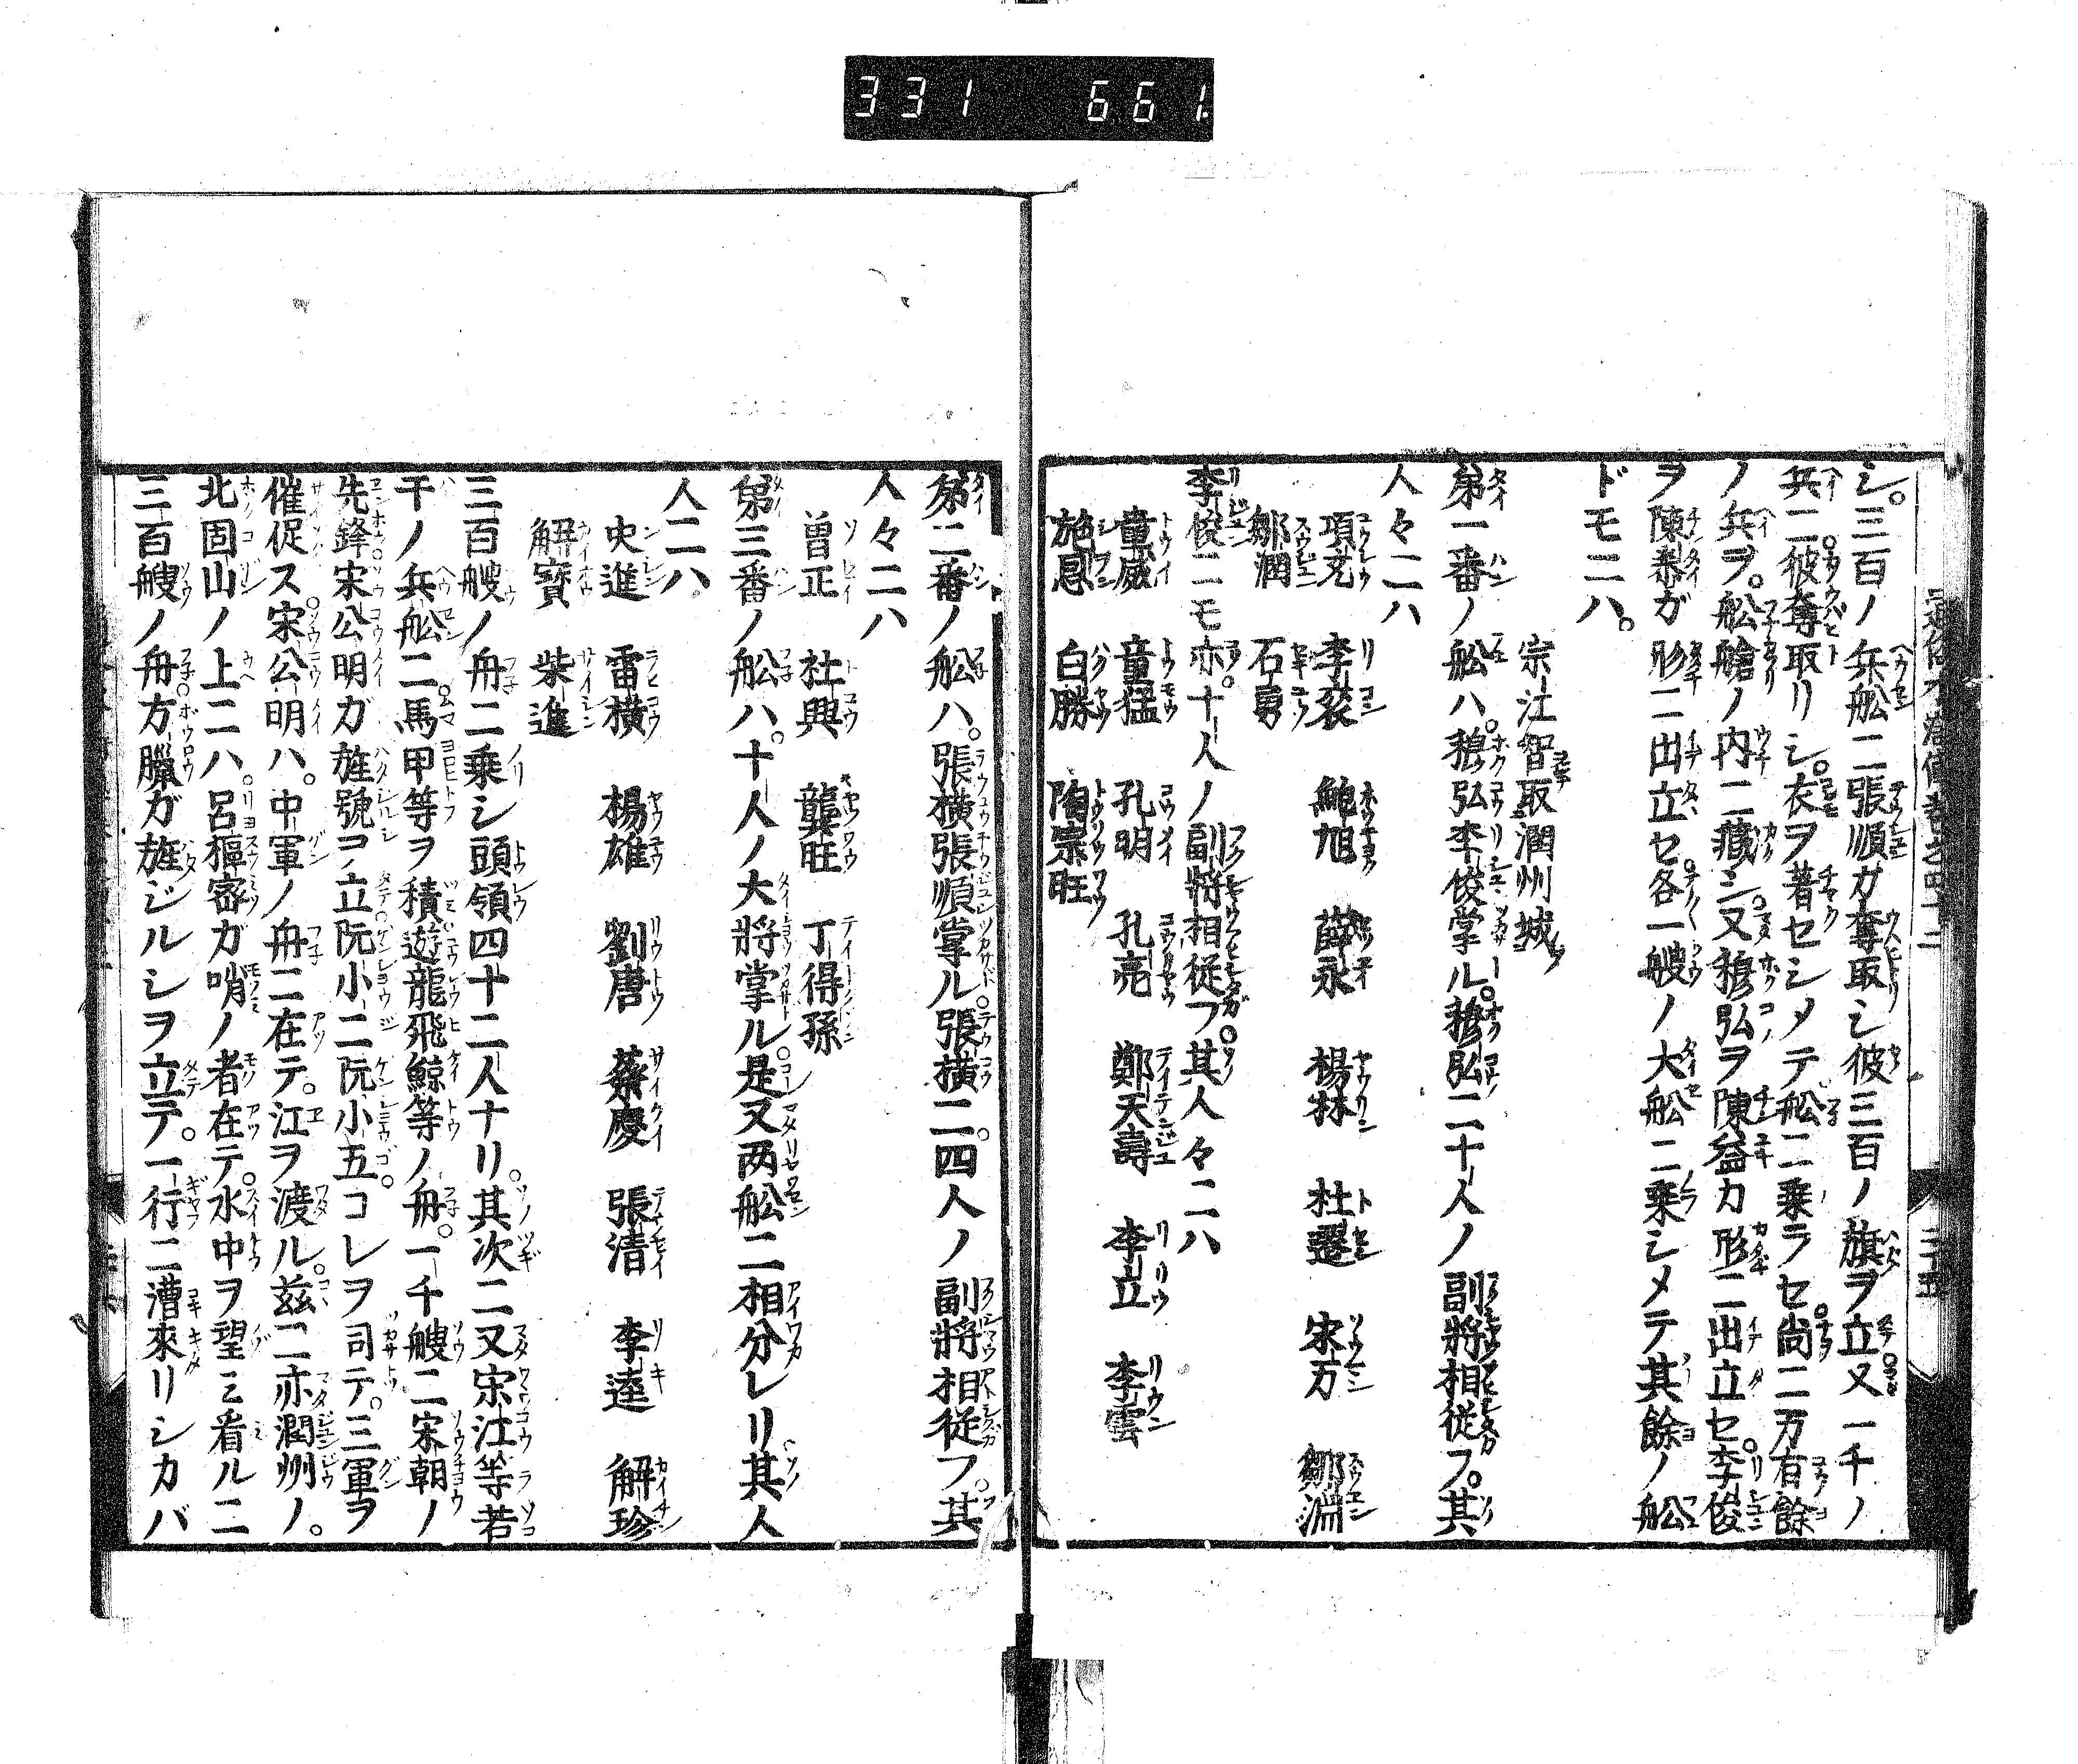 331 661
シ。三百ノ兵舩ニ張順ガ奪取シ彼三百ノ旗ヲ立又一千ノ
兵ニ。彼奪取リシ。衣ヲ著セシメテ舩ニ乗ラセ。尚二万有餘
ノ兵ヲ。舩艙ノ内ニ藏シ。又穆弘ヲ陳益カ形ニ出立セ。李俊
ヲ陳泰ガ形ニ出立セ。各一艘ノ大舩ニ乗シメテ其餘ノ舩
ドモニハ。
宗江智取潤州城
第一番ノ舩ハ。穆弘李俊掌ル。穆弘二十人ノ副將相従フ。其
人々ニハ
項充 李袞 鮑旭 薛永 楊林 杜遷 宋万 鄒淵
鄒潤 石勇
李俊ニモ亦。十人ノ副將相従フ。其人々ニハ
童威 童猛 孔明 孔亮 鄭天壽 李立 李雲
施恩 白勝 陶宗旺
第二番ノ舩ハ。張横張順掌ル。張横二。四人ノ副將相従フ。其
人々ニハ
曽正 社興 龔旺 丁得孫
第三番ノ舩ハ。十人ノ大將掌ル。是又両舩ニ相分レリ其人
人ニハ
史進 雷横 楊雄 劉唐 蔡慶 張清 李逵 解珍
解寳 柴進
三百艘ノ舟ニ乗シ頭領四十二人ナリ。其次ニ又宋江等若
干ノ兵舩ニ。馬甲等ヲ積。遊龍飛鯨等ノ舟。一千艘ニ宋朝ノ
先鋒宋公明ガ旌號ヲ立。阮小二阮小五。コレヲ司テ。三軍ヲ
催促ス。宋公明ハ。中軍ノ舟ニ在テ。江ヲ渡ル。茲ニ亦潤州ノ。
北固山ノ上ニハ。呂樞密ガ哨ノ者在テ。水中ヲ望ミ看ルニ
三百艘ノ舟。方臘ガ旌ジルシヲ立テ。一行ニ漕來リシカバ